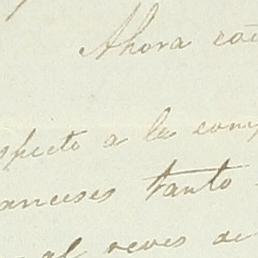 Ahora
specto a la comp
anceses tanto
al reves de